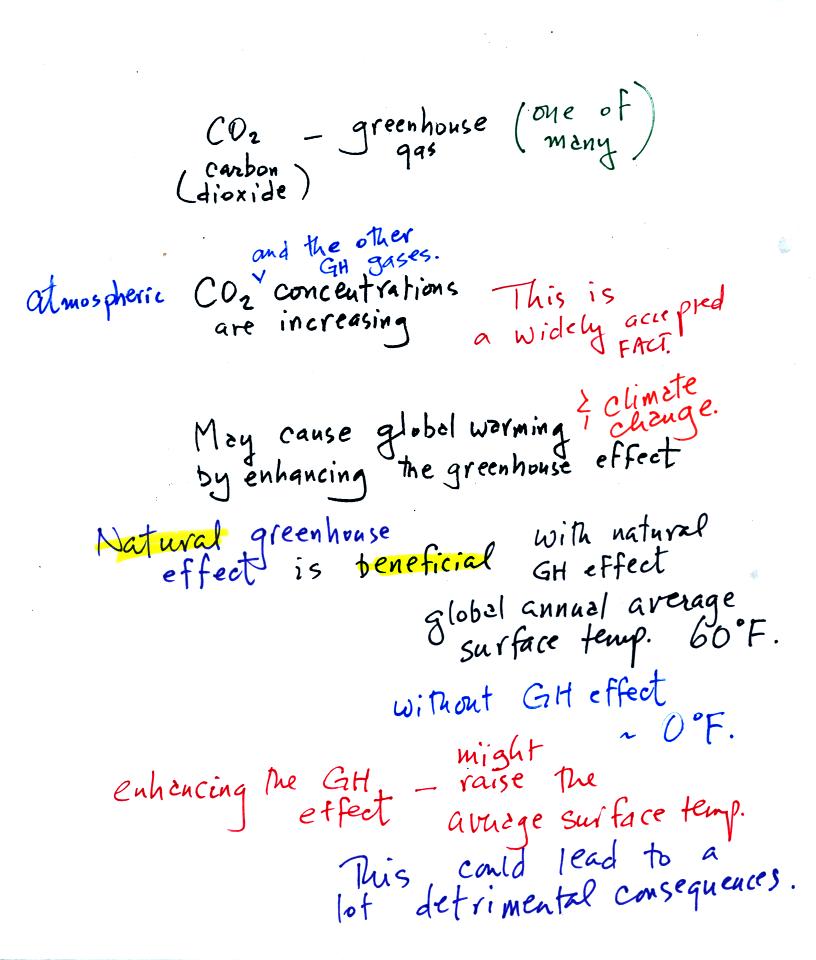 CO₂ – greenhouse gas (one of many)
(carbon dioxide)
and the other
GH gases.
atmospheric CO₂ ˅ concentrations
are increasing
This is
a widely accepted
FACT.
May cause global warming & climate change.
by enhancing the greenhouse effect
Natural greenhouse
effect is beneficial
with natural
GH effect
global annual average
surface temp. 60°F.
without GH effect
~ 0°F.
enhancing the GH effect – might raise the
average surface temp.
This could lead to a
lot detrimental consequences.